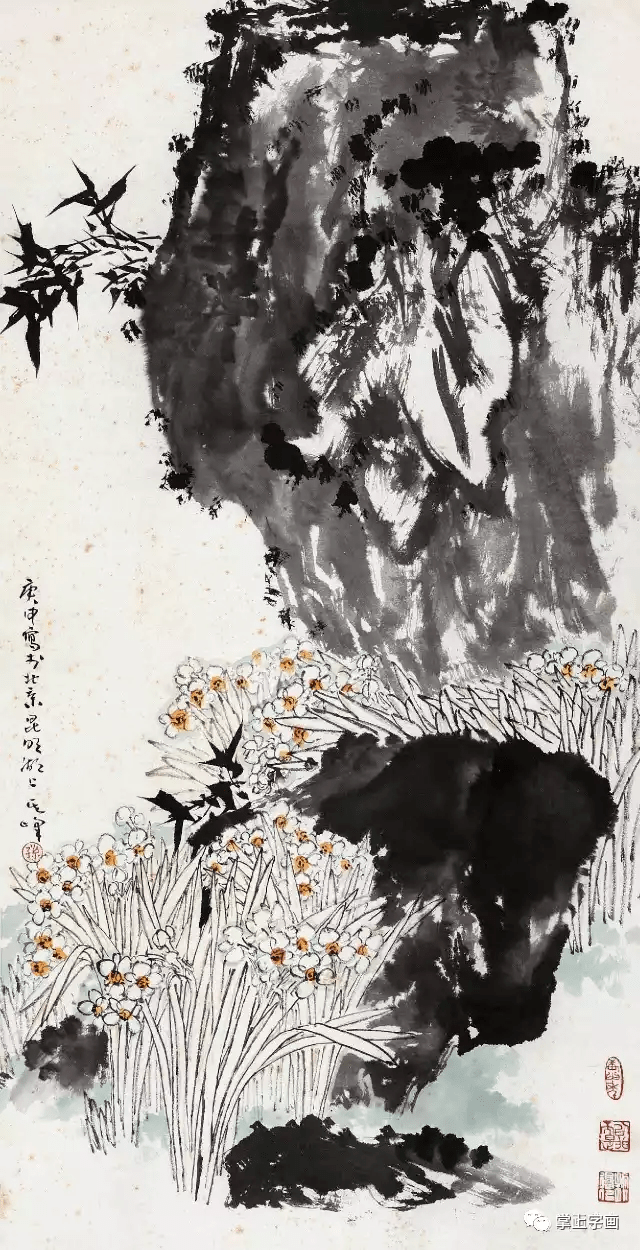 庚申寫於北京昆明湖上其峰
掌上字画